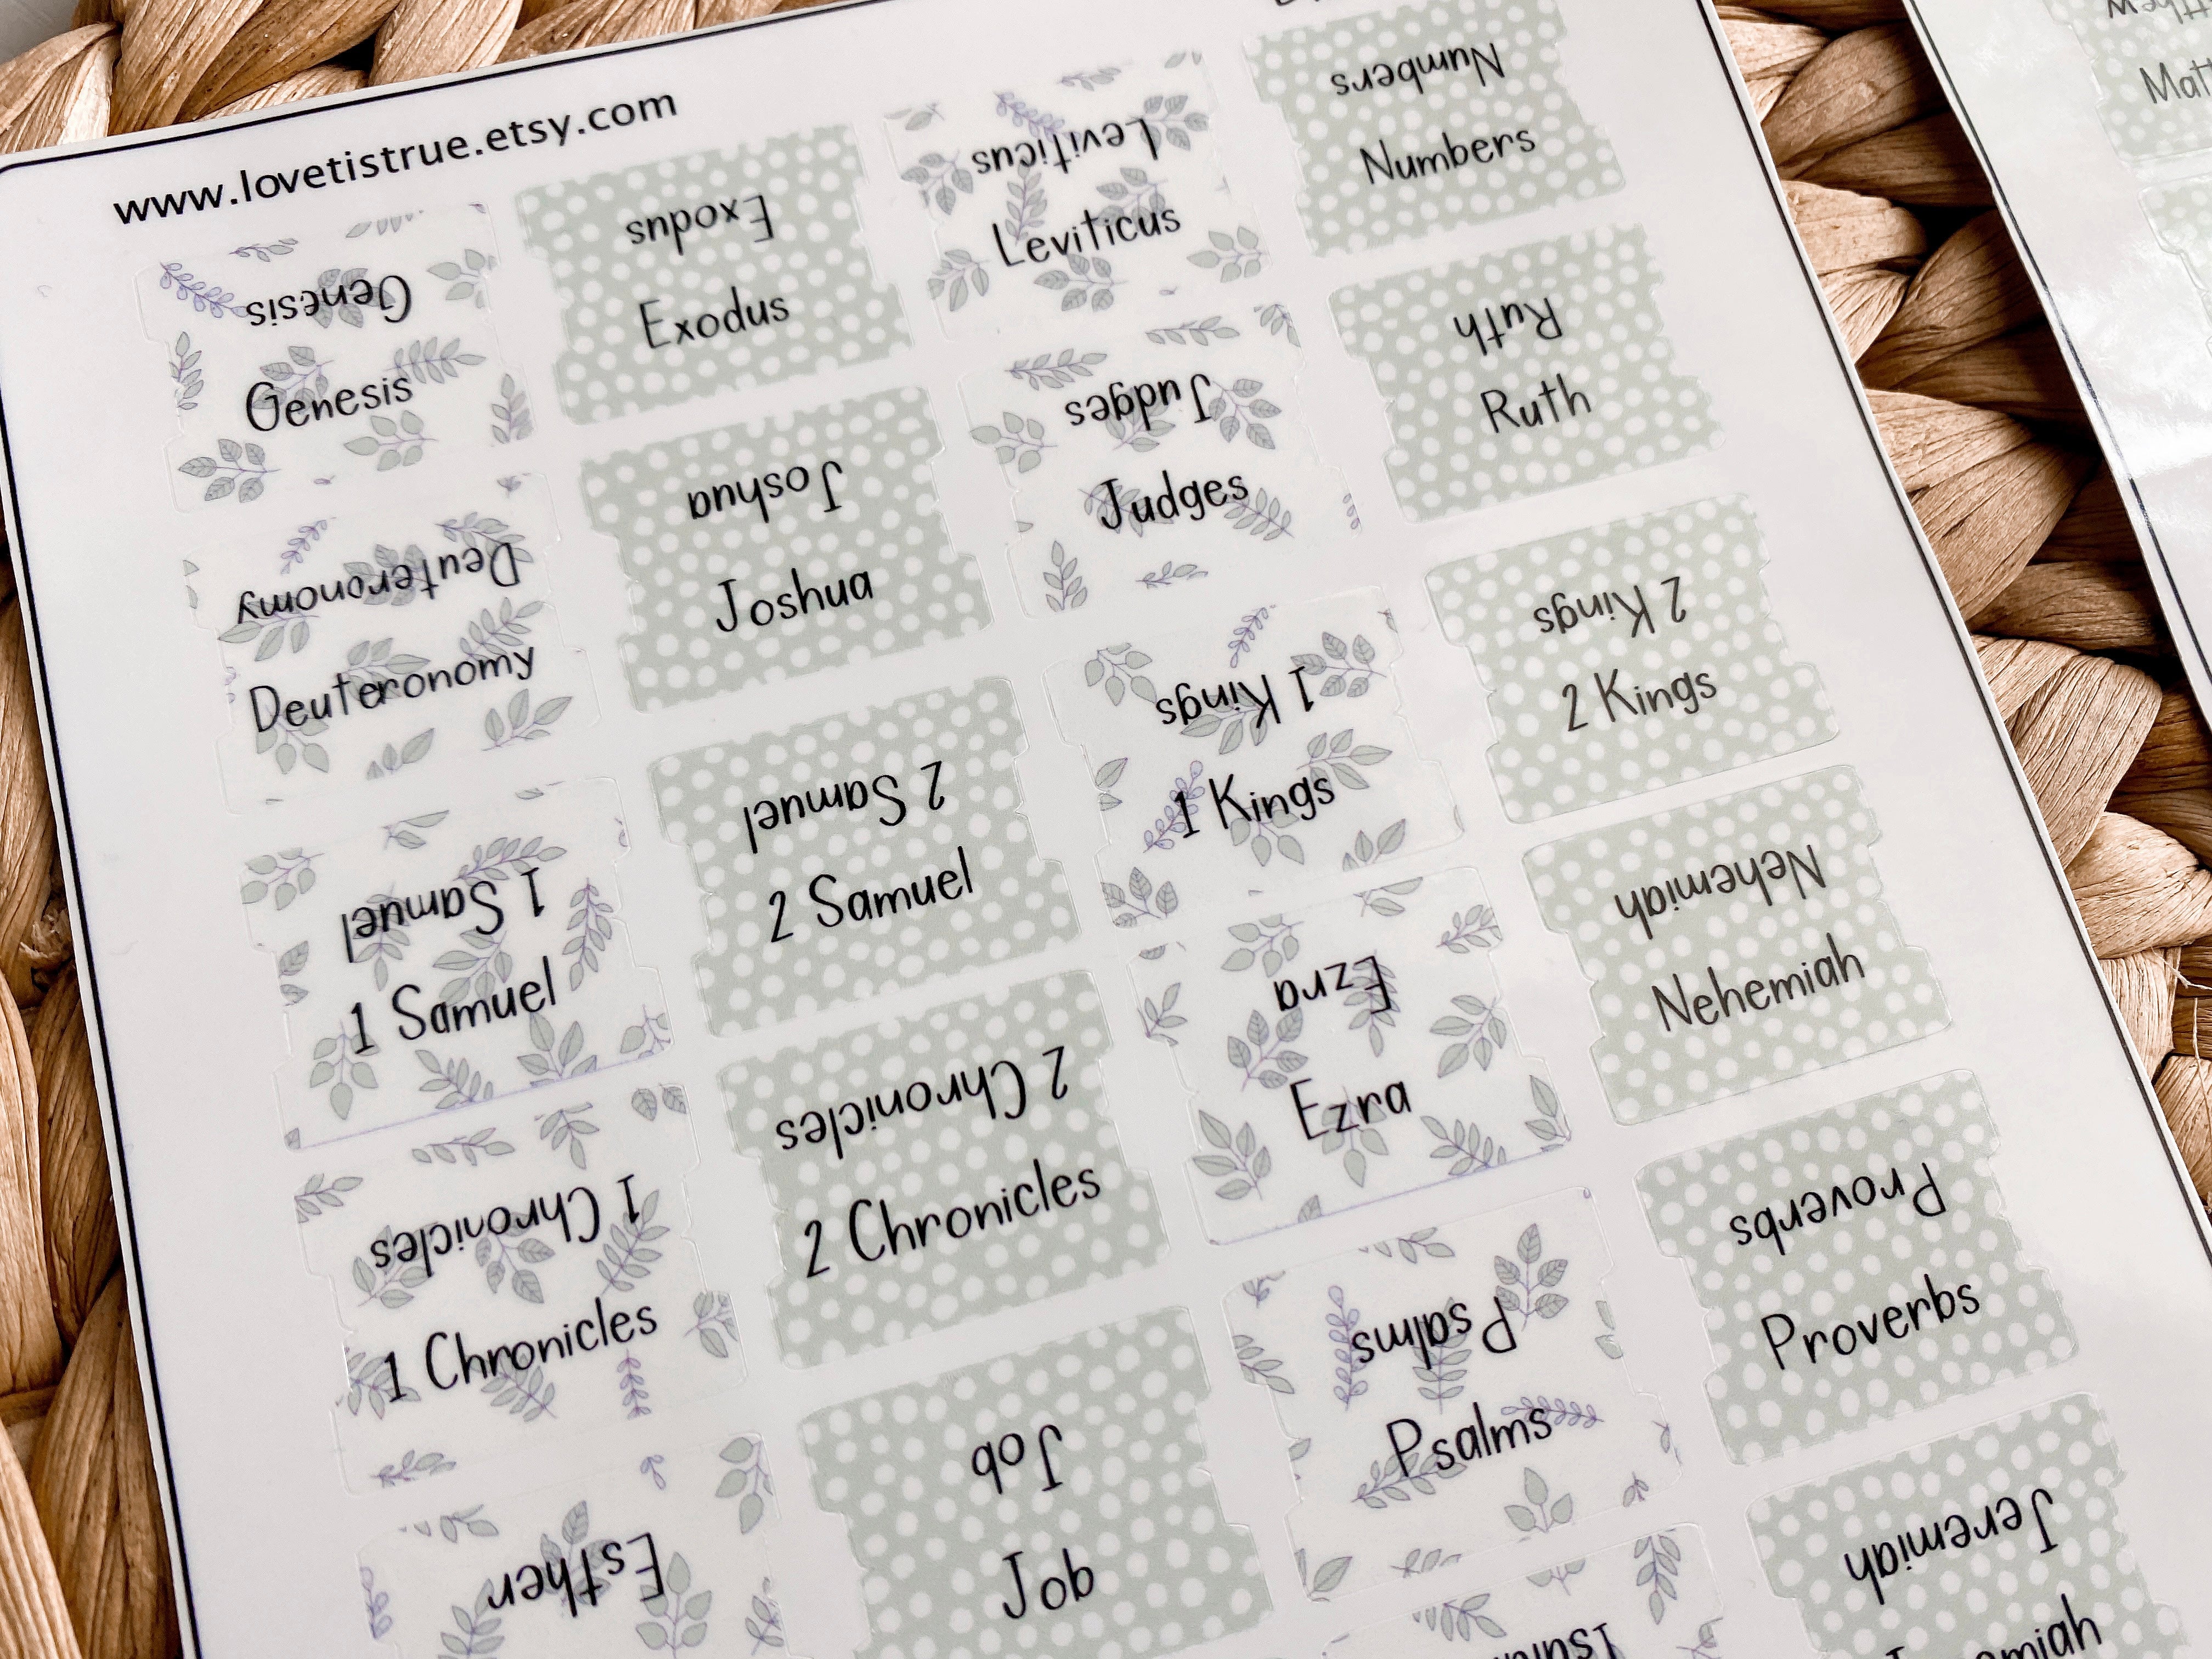 www.lovetistrue.etsy.com
Genesis
Genesis
Exodus
Exodus
Leviticus
Leviticus
Numbers
Numbers
Deuteronomy
Deuteronomy
Joshua
Joshua
Judges
Judges
Ruth
Ruth
1 Samuel
1 Samuel
2 Samuel
2 Samuel
1 Kings
1 Kings
2 Kings
2 Kings
1 Chronicles
1 Chronicles
2 Chronicles
2 Chronicles
Ezra
Ezra
Nehemiah
Nehemiah
Esther
Job
Job
Psalms
Psalms
Proverbs
Proverbs
Jeremiah